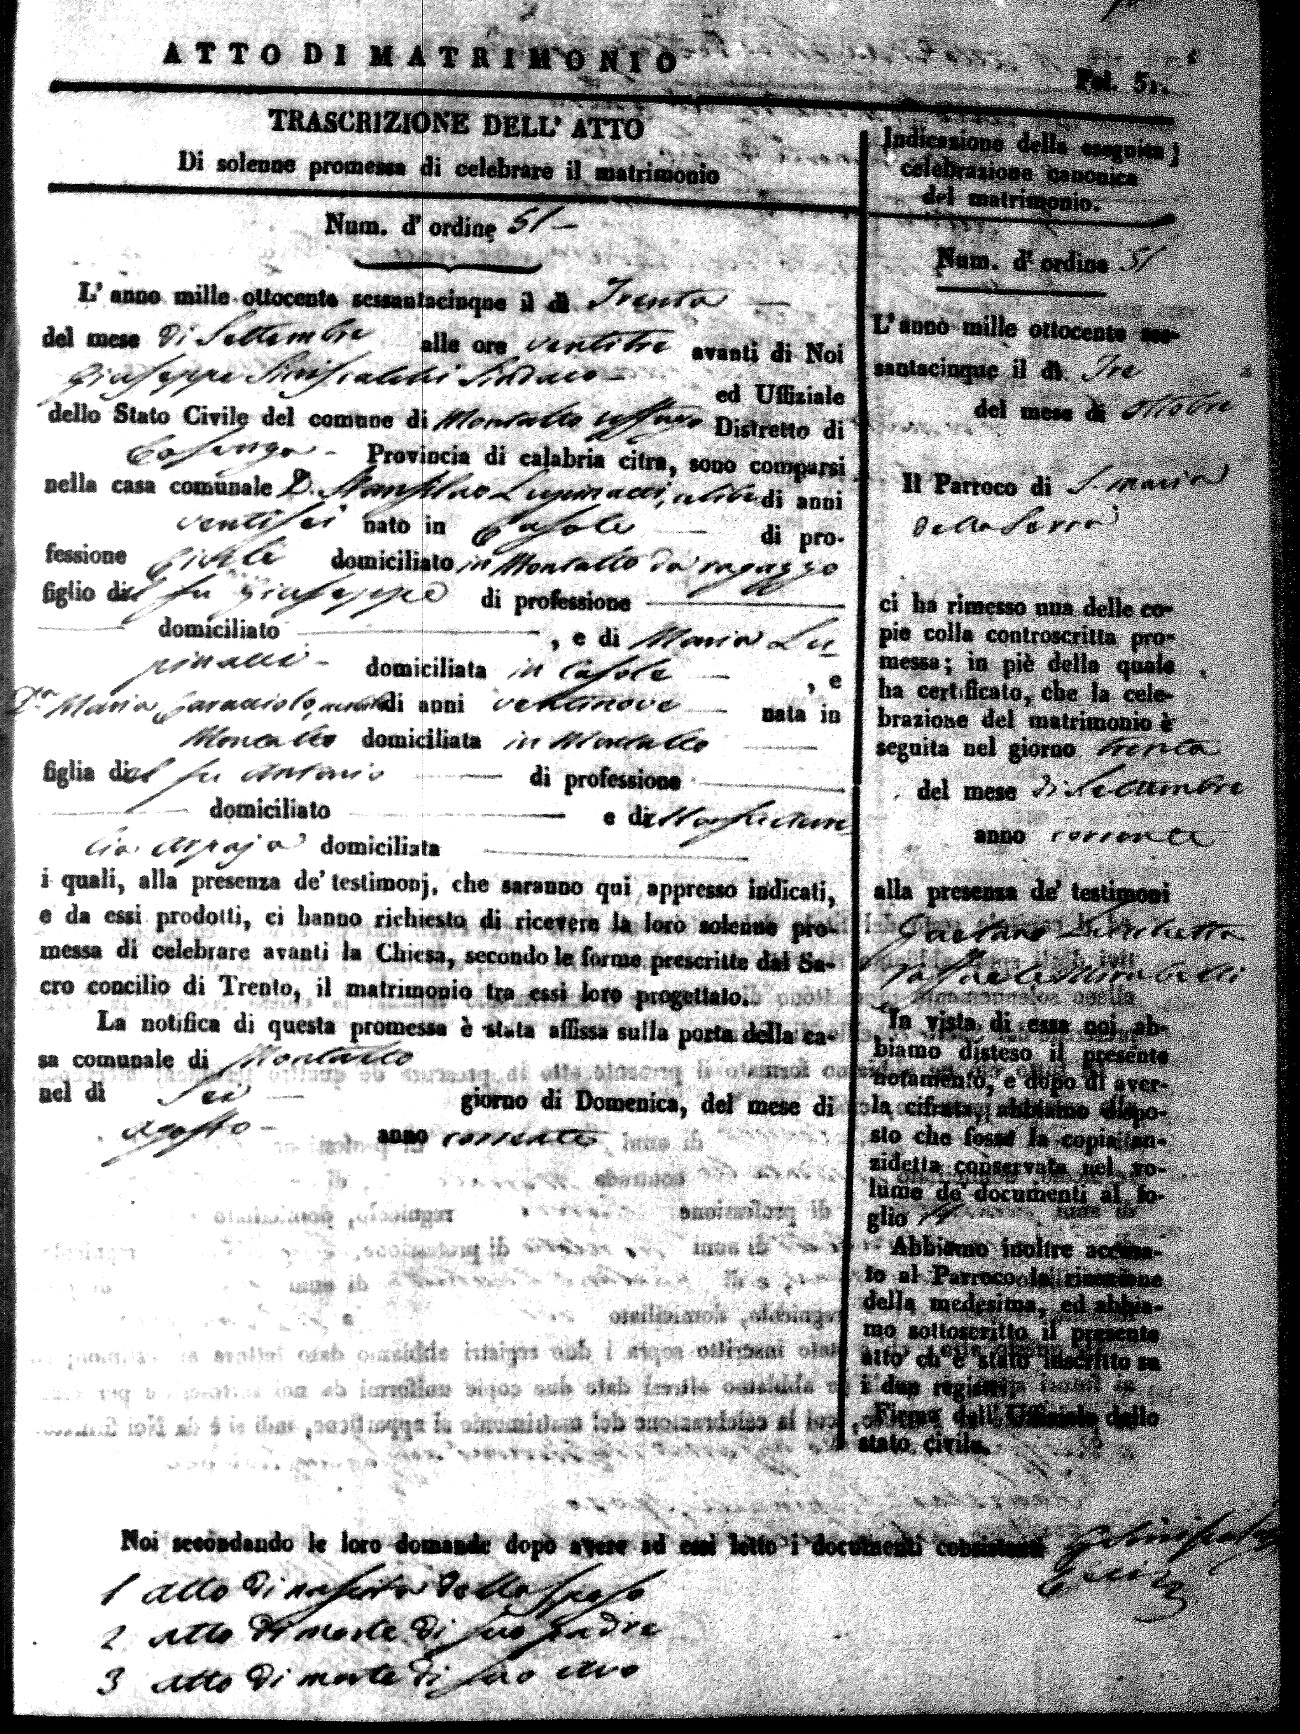 ATTO DI MATRIMONIO
Fol. 51.
TRASCRIZIONE DELL' ATTO
Di solenne promessa di celebrare il matrimonio
Num. d' ordine 51 –
L' anno mille ottocento sessantacinque il dì Trenta
del mese di Settembre alle ore ventitre avanti di Noi
Giuseppe Siniscalchi Sindaco ed Uffiziale
dello Stato Civile del comune di Montalto Uffugo Distretto di
Cosenza Provincia di calabria citra, sono comparsi
nella casa comunale D. Lupinacci, celibe di anni
ventisei nato in Casole di pro-
fessione Civile domiciliato in Montalto da ragazzo
figlio del fu Giuseppe di professione
domiciliato , e di Maria Lu
pinacci – domiciliata in Casole , e
D.a Maria Caracciolo, di anni ventinove nata in
Montalto domiciliata in Montalto
figlia del fu Antonio di professione
domiciliato e di
domiciliata
i quali, alla presenza de' testimonj, che saranno qui appresso indicati,
e da essi prodotti, ci hanno richiesto di ricevere la loro solenne pro-
messa di celebrare avanti la Chiesa, secondo le forme prescritte dal Sa-
cro concilio di Trento, il matrimonio tra essi loro progettato.
La notifica di questa promessa è stata affissa sulla porta della ca-
sa comunale di Montalto
nel dì Sei giorno di Domenica, del mese di
Agosto – anno corrente
Indicazione della eseguita
celebrazione canonica
del matrimonio.
Num. d' ordine 51
L' anno mille ottocento ses-
santacinque il dì Tre
del mese di Ottobre
Il Parroco di S. Maria
della Serra
ci ha rimesso una delle co-
pie colla controscritta pro-
messa; in piè della quale
ha certificato, che la cele-
brazione del matrimonio è
seguita nel giorno trenta
del mese di Settembre
anno corrente
alla presenza de' testimoni
Gaetano
Raffaele Mirabelli
In vista di essa noi ab-
biamo disteso il presente
notamento, e dopo di aver-
la cifrata, abbiamo dispo-
sto che fosse la copia an-
zidetta conservata nel vo-
lume de' documenti al fo-
glio
Abbiamo inoltre accusa-
to al Parroco la ricezione
della medesima, ed abbia-
mo sottoscritto il presente
atto ch' è stato inscritto su
i due registri.
Firma dell' Uffiziale dello
stato civile.
Noi secondando le loro domande dopo avere ad essi letto i documenti consistenti
1 Atto di nascita dello sposo
2 Atto di morte di suo padre
3 Atto di morte di suo avo